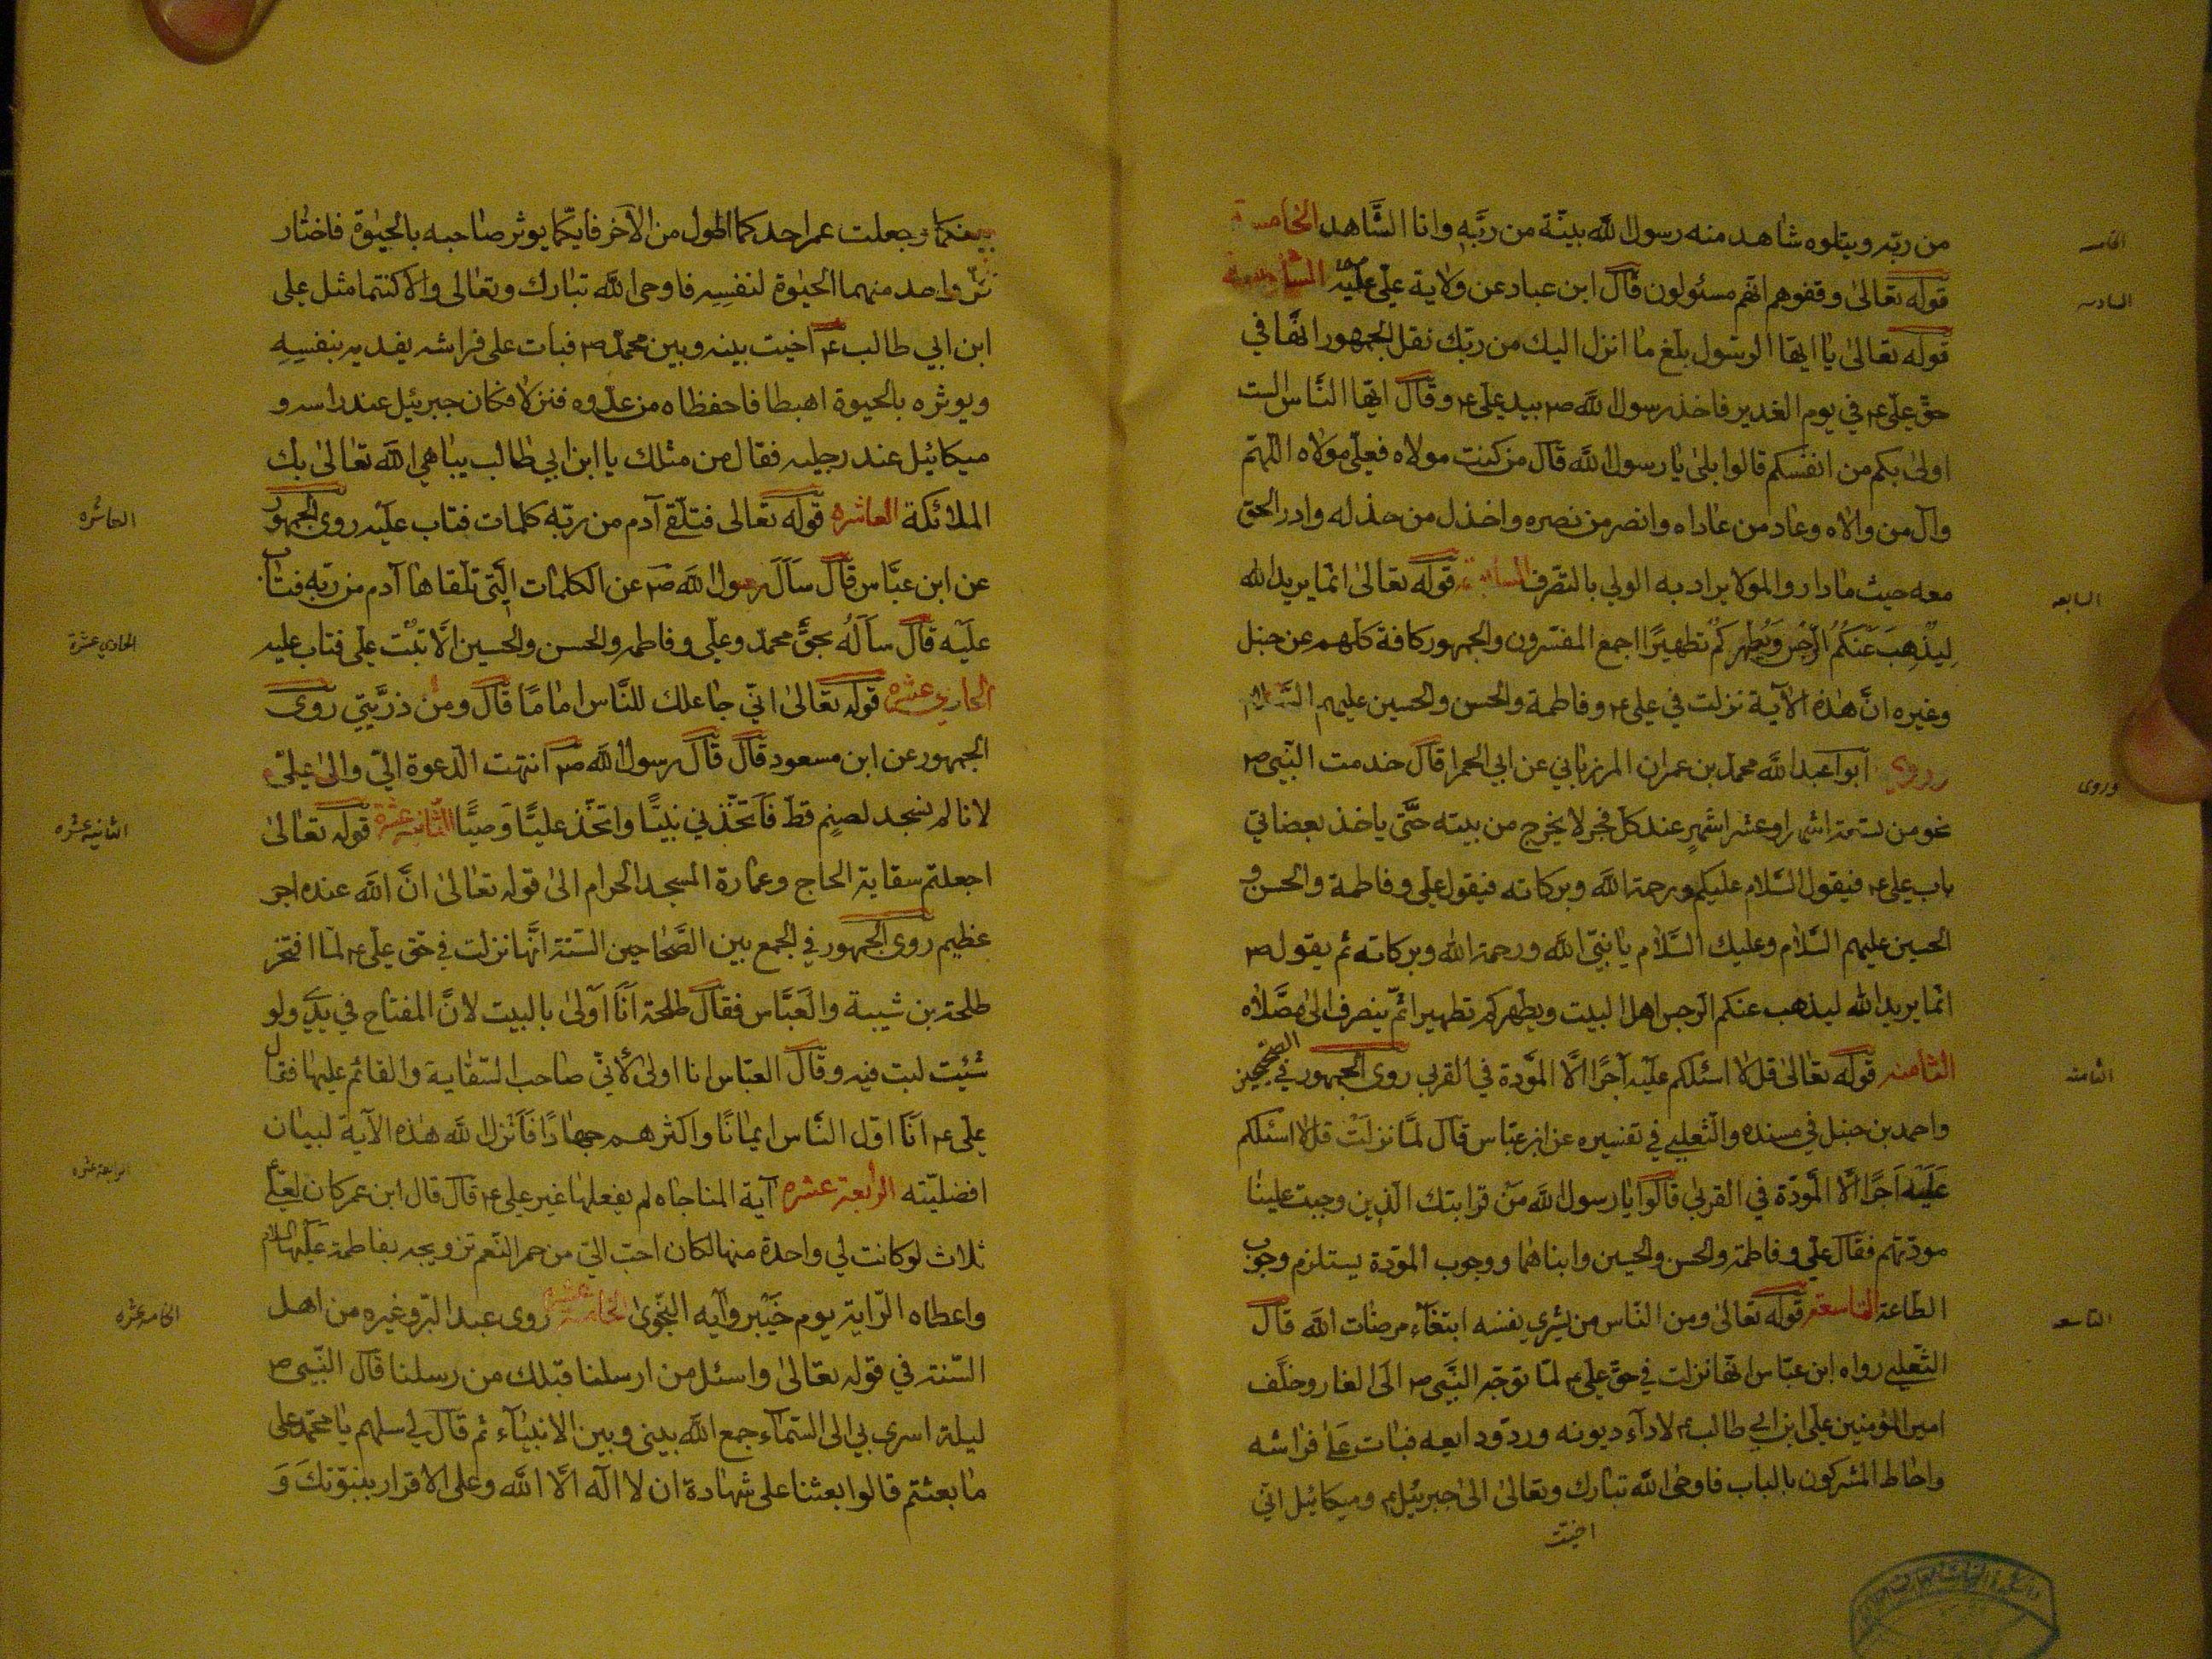 من ربّه ويتلوه شاهد منه رسول الله بينة من ربّه وانا الشّاهد الخامسة
قوله تعالى وقفوهم انهم مسئولون قال ابن عباد عن ولاية علي عليه السادسة
قوله تعالى يا ايها الرسول بلغ ما انزل اليك من ربك نقل الجمهور انها في
حق علي ع في يوم الغدير فاخذ رسول الله ص بيد علي ع وقال ايها الناس الست
اولى بكم من انفسكم قالوا بلى يا رسول الله قال من كنت مولاه فعلي مولاه اللهم
وال من والاه وعاد من عاداه وانصر من نصره واخذل من خذله وادر الحق
معه حيث ما دار والمولا يراد به الولي بالتصرف السابعة قوله تعالى انما يريد الله
ليذهب عنكم الرجس ويطهركم تطهيرا اجمع المفسرون والجمهور كافة كلهم عن حنبل
وغيره ان هذه الاية نزلت في علي ع وفاطمة والحسن والحسين عليهم السلام
وروى ابوا عبد الله محمد بن عمران المرزباني عن ابي الحمرا قال خدمت النبي ص
نحو من ستة اشهر او عشر اشهر عند كل فجر لا يخرج من بيته حتى ياخذ بعضاتي
باب علي ع فيقول السلام عليكم ورحمة الله وبركاته فيقول علي وفاطمة والحسن و
الحسين عليهم السلام وعليك السلام يا نبي الله ورحمة الله وبركاته ثم يقول ص
انما يريد الله ليذهب عنكم الرجس اهل البيت ويطهركم تطهيرا ثم ينصرف الى مصلاه
الثامنه قوله تعالى قل لا اسئلكم عليه اجرا الا المودة في القربى روى الجمهور في الصحيحين
واحمد بن حنبل في مسنده والثعلبي في تفسيره عن ابن عباس قال لما نزلت قل لا اسئلكم
عليه اجرا الا المودة في القربى قالوا يا رسول الله من قرابتك الذين وجبت علينا
مودتهم فقال علي وفاطمة والحسن والحسين وابناهما ووجوب المودة يستلزم وجوب
الطاعة التاسعة قوله تعالى ومن الناس من يشري نفسه ابتغاء مرضات الله قال
الثعلبي رواه ابن عباس انها نزلت في حق علي ع لما توجه النبي ص الى الغار وخلف
امير المؤمنين علي ابن ابي طالب ع لاداء ديونه وردّ ودايعه فبات على فراشه
واحاط المشركون بالباب فاوحى الله تبارك وتعالى الى جبرئيل ع وميكائيل اني
اخيت
الخامسه
السادسه
السابعه
وروى
الثامنه
التاسعه
بينكما وجعلت عمر احدكما اطول من الآخر فايكما يوثر صاحبه بالحيوة فاختار
كل واحد منهما الحيوة لنفسه فاوحى الله تبارك وتعالى والا كنتما مثل علي
ابن ابي طالب ع اخيت بينه وبين محمد ص فبات على فراشه يفديه بنفسه
ويوثره بالحيوة اهبطا فاحفظاه من عدوه فنزلا فكان جبرئيل عند راسه و
ميكائيل عند رجليه فقال من مثلك يا ابن ابي طالب يباهي الله تعالى بك
الملائكة العاشره قوله تعالى فتلقى آدم من ربه كلمات فتاب عليه روى الجمهور
عن ابن عباس قال سال رسول الله ص عن الكلمات التي تلقاها آدم من ربه فتاب
عليه قال ساله بحق محمد وعلي وفاطمه والحسن والحسين الا تبت علي فتاب عليه
الحاري عشره قوله تعالى اني جاعلك للناس اماما قال ومن ذريتي روى
الجمهور عن ابن مسعود قال قال رسول الله ص انتهت الدعوة الي والى علي
لانا لم نسجد لصنم قط فاتخذني نبيا واتخذ عليا وصيا الثانيه عشرة قوله تعالى
اجعلتم سقاية الحاج وعمارة المسجد الحرام الى قوله تعالى ان الله عنده اجر
عظيم روى الجمهور في الجمع بين الصحاحين الستة انها نزلت في حق علي ع لما افتخر
طلحة بن شيبة والعباس فقال طلحة انا اولى بالبيت لان المفتاح في يدي ولو
شئيت لبت فيه وقال العباس انا اولى لاني صاحب السقاية والقائم عليها فقال
علي ع انا اول الناس ايمانا واكثرهم جهادا فانزل الله هذه الآية لبيان
افضليته الرابعة عشره آية المناجاه لم يفعلها غير علي ع قال قال ابن عمر كان لعلي
ثلاث لو كانت لي واحدة منها لكان احب الي من حمر النعم تزويجه بفاطمة عليها السلام
واعطاه الراية يوم خيبر وآيه النجوى الخامسة عشره روى عبد البر وغيره من اهل
السنة في قوله تعالى واسئل من ارسلنا قبلك من رسلنا قال النبي ص
ليلة اسري بي الى السماء جمع الله بيني وبين الانبياء ثم قال لي سلهم يا محمد على
ما بعثتم قالوا بعثنا على شهادة ان لا اله الا الله وعلى الاقرار بنبوتك و
العاشره
الحادي عشرة
الثانية عشره
الرابعة عشره
الخامسه عشره